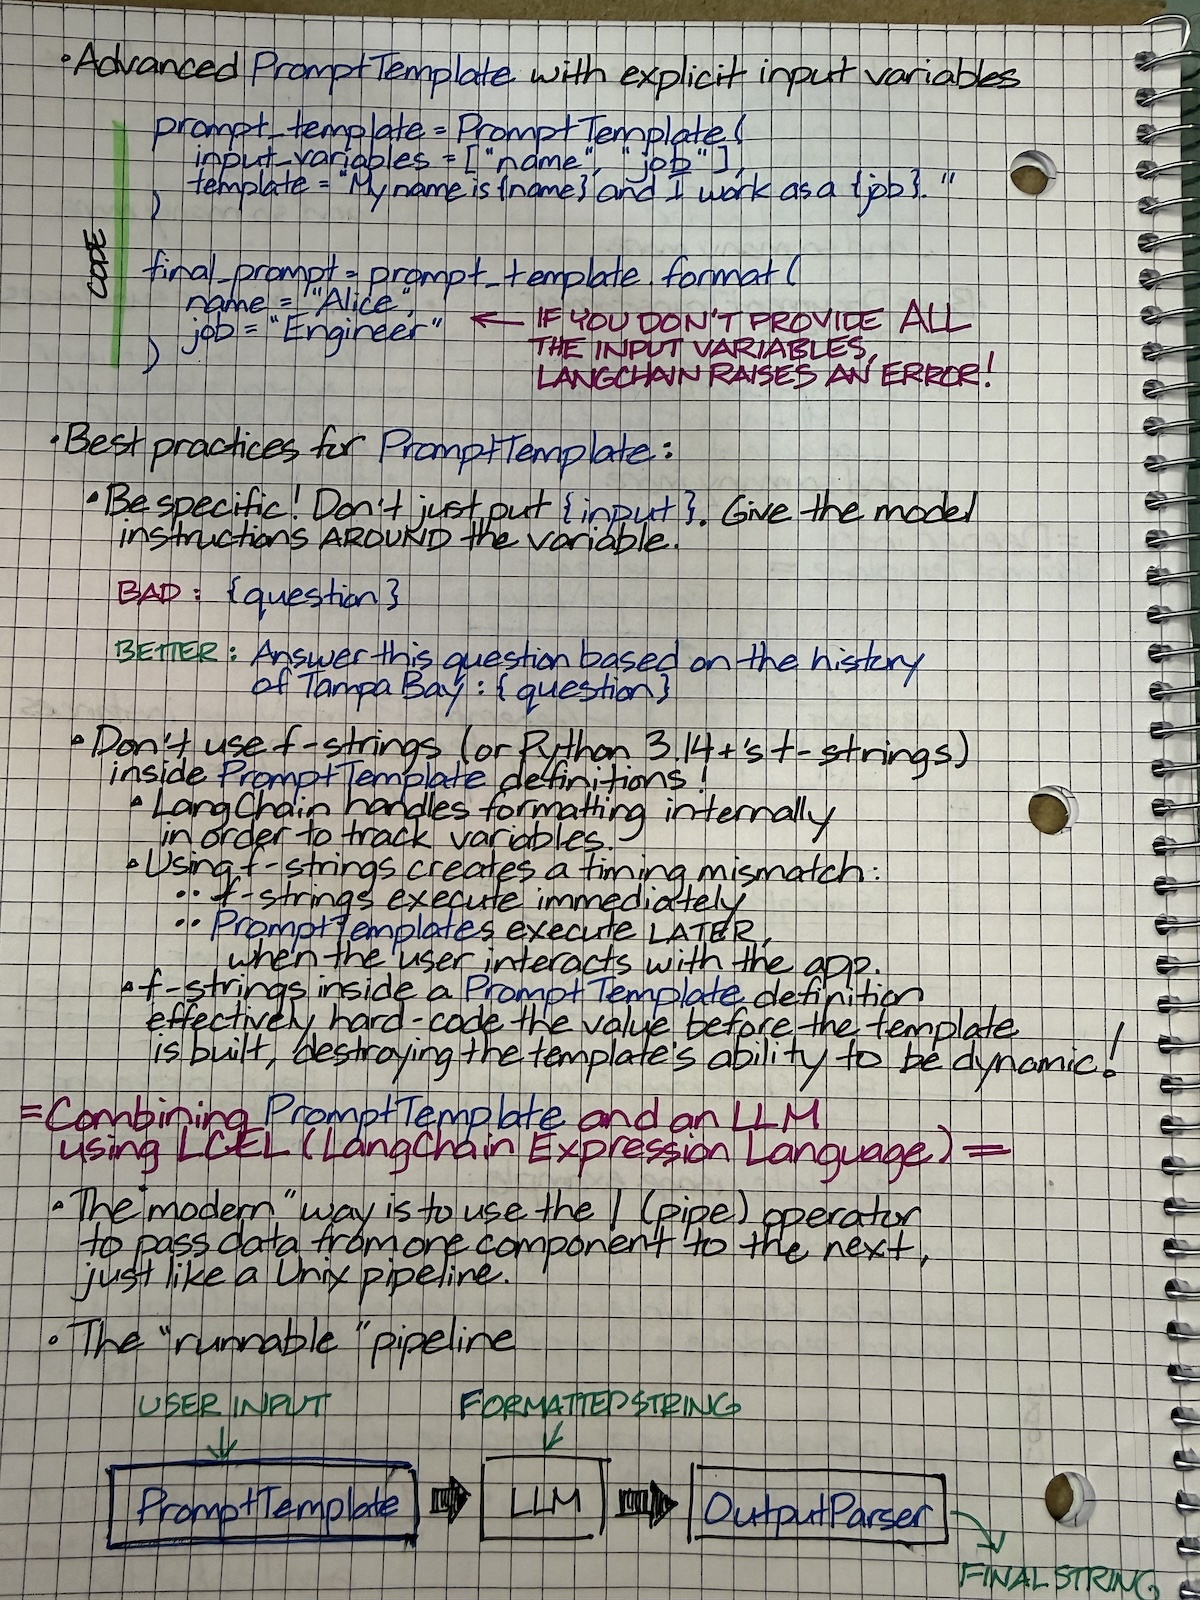 • Advanced PromptTemplate with explicit input variables
CODE
prompt_template = PromptTemplate(
input_variables = ["name", "job"],
template = "My name is {name} and I work as a {job}."
)
final_prompt = prompt_template.format(
name = "Alice",
job = "Engineer"
)
← IF YOU DON'T PROVIDE ALL
THE INPUT VARIABLES,
LANGCHAIN RAISES AN ERROR!
• Best practices for PromptTemplate:
• Be specific! Don't just put {input}. Give the model
instructions AROUND the variable.
BAD: {question}
BETTER: Answer this question based on the history
of Tampa Bay: {question}
• Don't use f-strings (or Python 3.14+'s t-strings)
inside PromptTemplate definitions!
• LangChain handles formatting internally
in order to track variables.
• Using f-strings creates a timing mismatch:
•• f-strings execute immediately
•• PromptTemplates execute LATER,
when the user interacts with the app.
• f-strings inside a PromptTemplate definition
effectively hard-code the value before the template
is built, destroying the template's ability to be dynamic!
= Combining PromptTemplate and an LLM
using LCEL (LangChain Expression Language) =
• The "modern" way is to use the | (pipe) operator
to pass data from one component to the next,
just like a Unix pipeline.
• The "runnable" pipeline
USER INPUT FORMATTED STRING
PromptTemplate LLM OutputParser
FINAL STRING